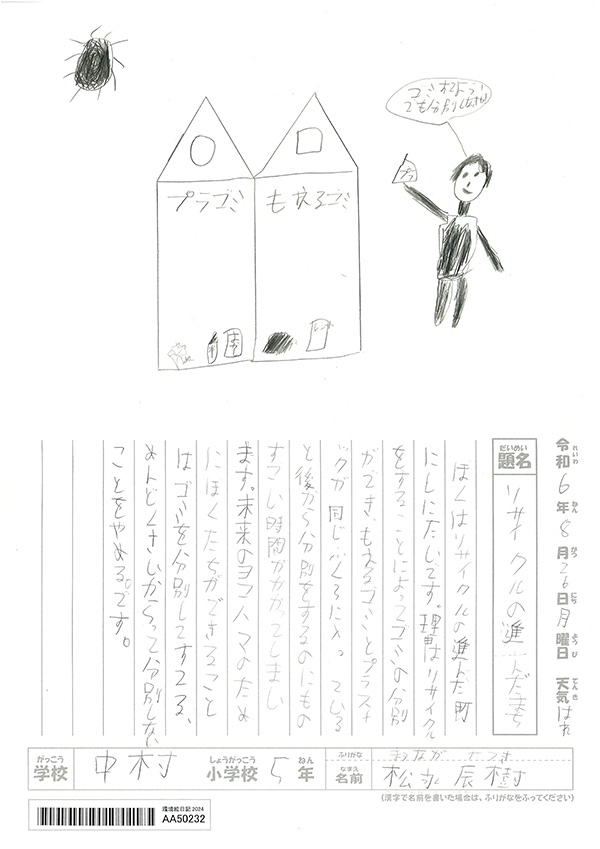 ゴミすてようで
も分別しなきゃ
プラ
プラゴミ
もえるゴミ
令和6年8月26日月曜日 天気はれ
れいわ ねん がつ にち ようび てんき
だいめい
題名
リサイクルの進んだまち
ぼくはリサイクルの進んだ町
にしたいです。理由はリサイクル
をすることによってゴミの分別
ができ、もえるゴミとプラスチ
ックが同じふくろに入っている
と後から分別をするのにもの
すごい時間がかかってしまい
ます。未来のヨコハマのため
にぼくたちができること
はゴミを分別してすてる、
めんどくさいからって分別しない
ことをやめる。です。
がっこう
学校
中村
しょうがっこう
小学校
5
ねん
年
ふりがな
まつなが たつき
なまえ
名前
松永 辰樹
(漢字で名前を書いた場合は、ふりがなをふってください)
環境絵日記2024
AA50232